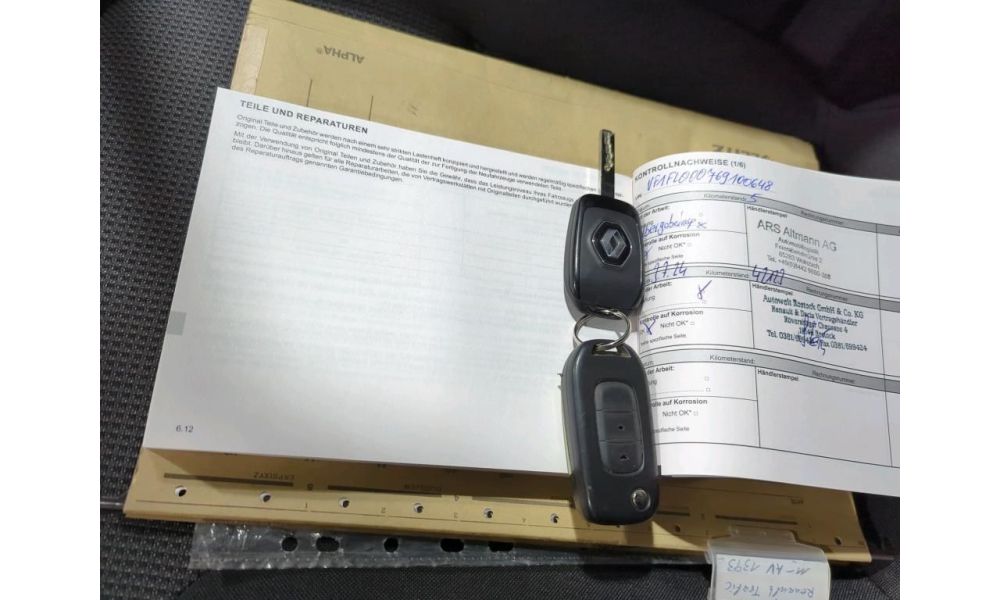 ALPHA®
VELITZ
TEILE UND REPARATUREN
Original Teile und Zubehör werden nach einem sehr strikten Lastenheft konzipiert und hergestellt und werden regelmäßig spezifischen
zogen. Die Qualität entspricht folglich mindestens der Qualität der zur Fertigung der Neufahrzeuge verwendeten Teile.
Mit der Verwendung von Original Teilen und Zubehör haben Sie die Gewähr, dass das Leistungsniveau Ihres Fahrzeugs
bleibt. Darüber hinaus gelten für alle Reparaturarbeiten, die von Vertragswerkstätten mit Originalteilen durchgeführt wurden
des Reparaturauftrags genannten Garantiebedingungen.
6.12
KONTROLLNACHWEISE (1/6)
VF1FL000769100648
Kilometerstand: 5
der Arbeit:
Händlerstempel
Rechnungsnummer:
ARS Altmann AG
Automobillogistik
Tel.
rolle auf Korrosion
Nicht OK*
spezifische Seite
7.24
Kilometerstand:
der Arbeit:
Händlerstempel
Rechnungsnummer:
Autowelt Rostock GmbH & Co. KG
Renault & Dacia Vertragshändler
Rövershäger Chaussee 4
Rostock
Tel. 0381/ Fax 0381/699424
rolle auf Korrosion
Nicht OK*
spezifische Seite
Kilometerstand:
der Arbeit:
Händlerstempel
Rechnungsnummer:
rolle auf Korrosion
Nicht OK*
spezifische Seite
Renault Trafic
M-AV 1393